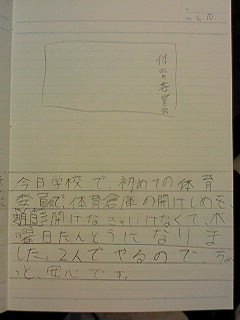 体育委員会
今日学校で、初めての体育
委員で体育倉庫の開けしめを、
朝開けなきゃいけなくて、木
曜日たんとうになりま
した。2人でやるので、ちょ
っと、安心です。